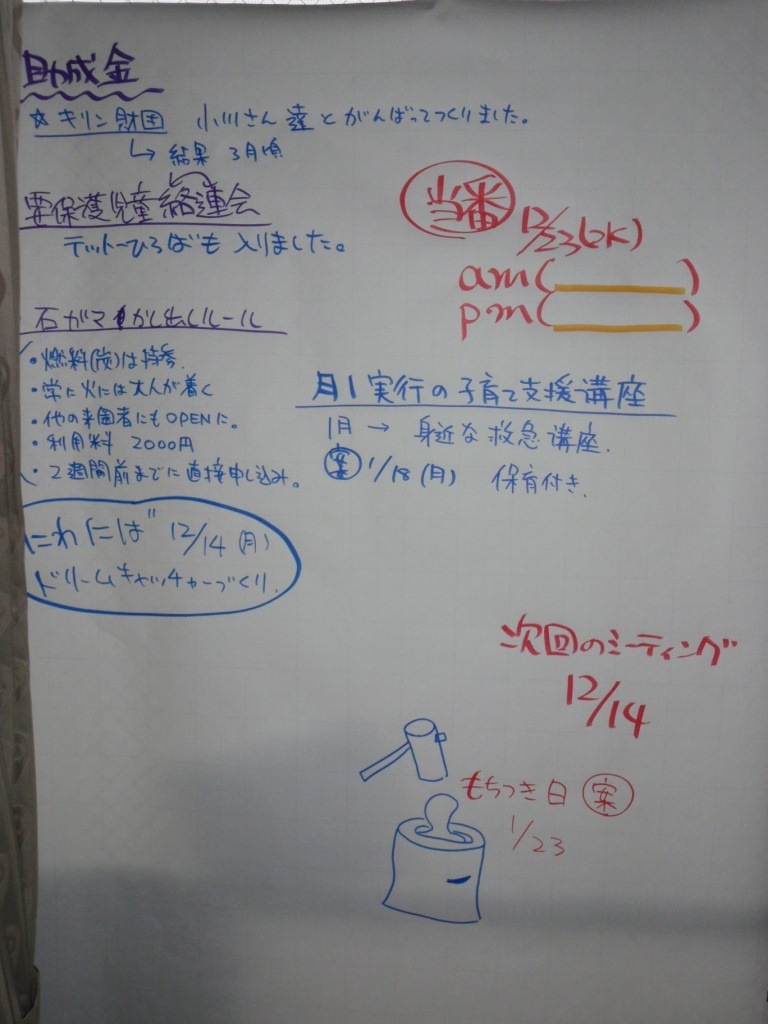 助成金
☆キリン財団 小川さん達とがんばってつくりました。
↳ 結果 3月頃
要保護児童絡連会
テットーひろばも入りました。
石ガマかし出しルール
・燃料(炭)は持参.
・常に火には大人が着く
・他の来園者にもOPENに。
・利用料 2000円
・2週間前までに直接申し込み。
にわには" 12/14(月)
ドリームキャッチャーづくり.
当番 12/23(水)
am( )
pm( )
月1実行の子育て支援講座
1月 → 身近な救急講座.
案 1/18(月) 保育付き.
次回のミーティング
12/14
もちつき日 案
1/23